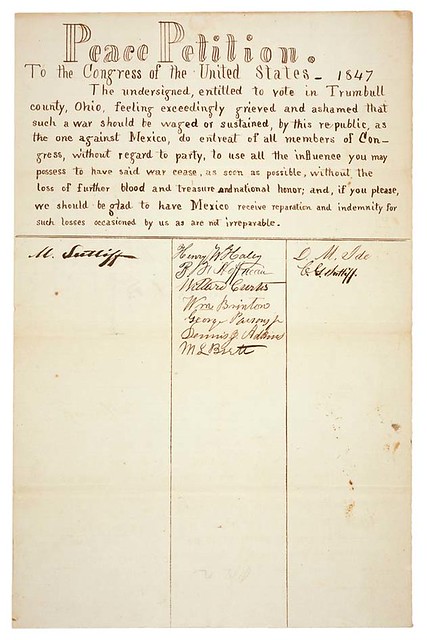 Peace Petition.
To the Congress of the United States_ 1847
The undersigned, entitled to vote in Trumbull
county, Ohio, feeling exceedingly grieved and ashamed that
such a war should be waged or sustained, by this republic, as
the one against Mexico, do entreat of all members of Con-
gress, without regard to party, to use all the influence you may
possess to have said war cease, as soon as possible, without the
loss of further blood and treasure and national honor; and, if you please,
we should be glad to have Mexico receive reparation and indemnity for
such losses occasioned by us as are not irreparable.
M. Sutliff
Henry W Haley
Willard Curtis
Wm Brinton
George Parsons Jr
Dennis J Adams
D. M. Ide
C G Sutliff